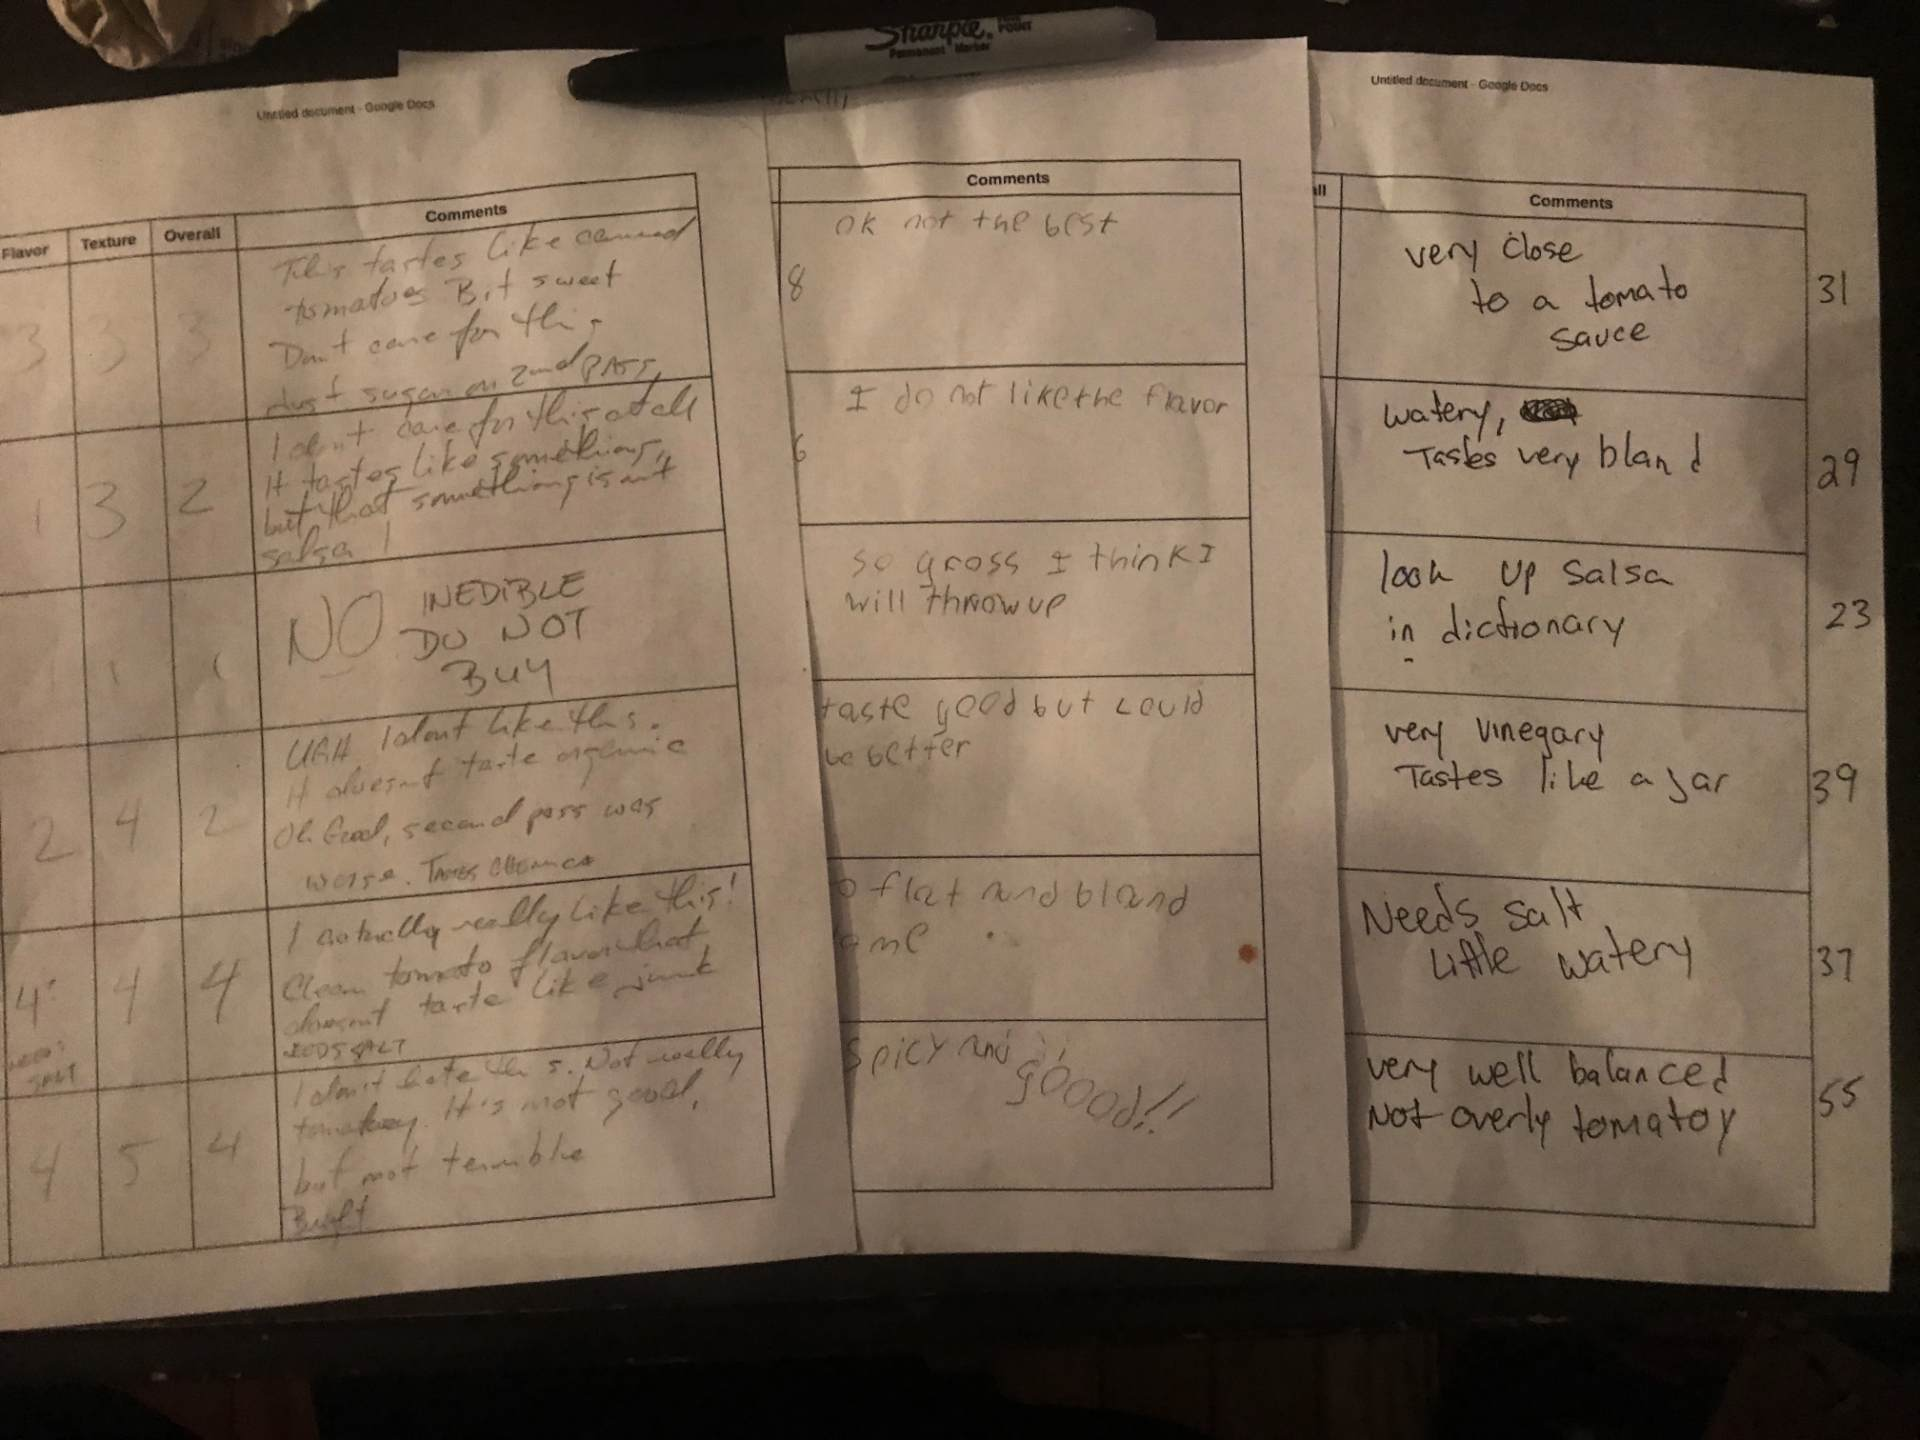 Sharpie
Permanent Marker
POINT
Untitled document - Google Docs
Flavor Texture Overall Comments
3 3 3
This tastes like canned
tomatoes. But sweet
Don't care for this
Just sugar on 2nd PASS
1 3 2
I don't care for this at all
It tastes like something,
but that something isn't
salsa!
1 1 1
NO INEDIBLE
DO NOT
BUY
2 4 2
UGH I dont like this.
It doesn't taste organic
Oh Good, second pass was
worse. TASTES
4 4 4
NEEDS
SALT
I actually really like this!
Clean tomato flavor that
doesn't taste like junk
NEEDS SALT
4 5 4
I don't hate this. Not really
tomatoey. It's not good,
but not terrible
Comments
ok not the best
8
I do not like the flavor
6
so gross I think I
will throw up
taste good but could
be better
flat and bland
spicy and
goood!!
Untitled document - Google Docs
all Comments
very close
to a tomato
sauce
31
watery,
Tastes very bland
29
look up salsa
in dictionary
23
very vinegary
Tastes like a jar
39
Needs salt
Little watery
37
very well balanced
Not overly tomatoy
55